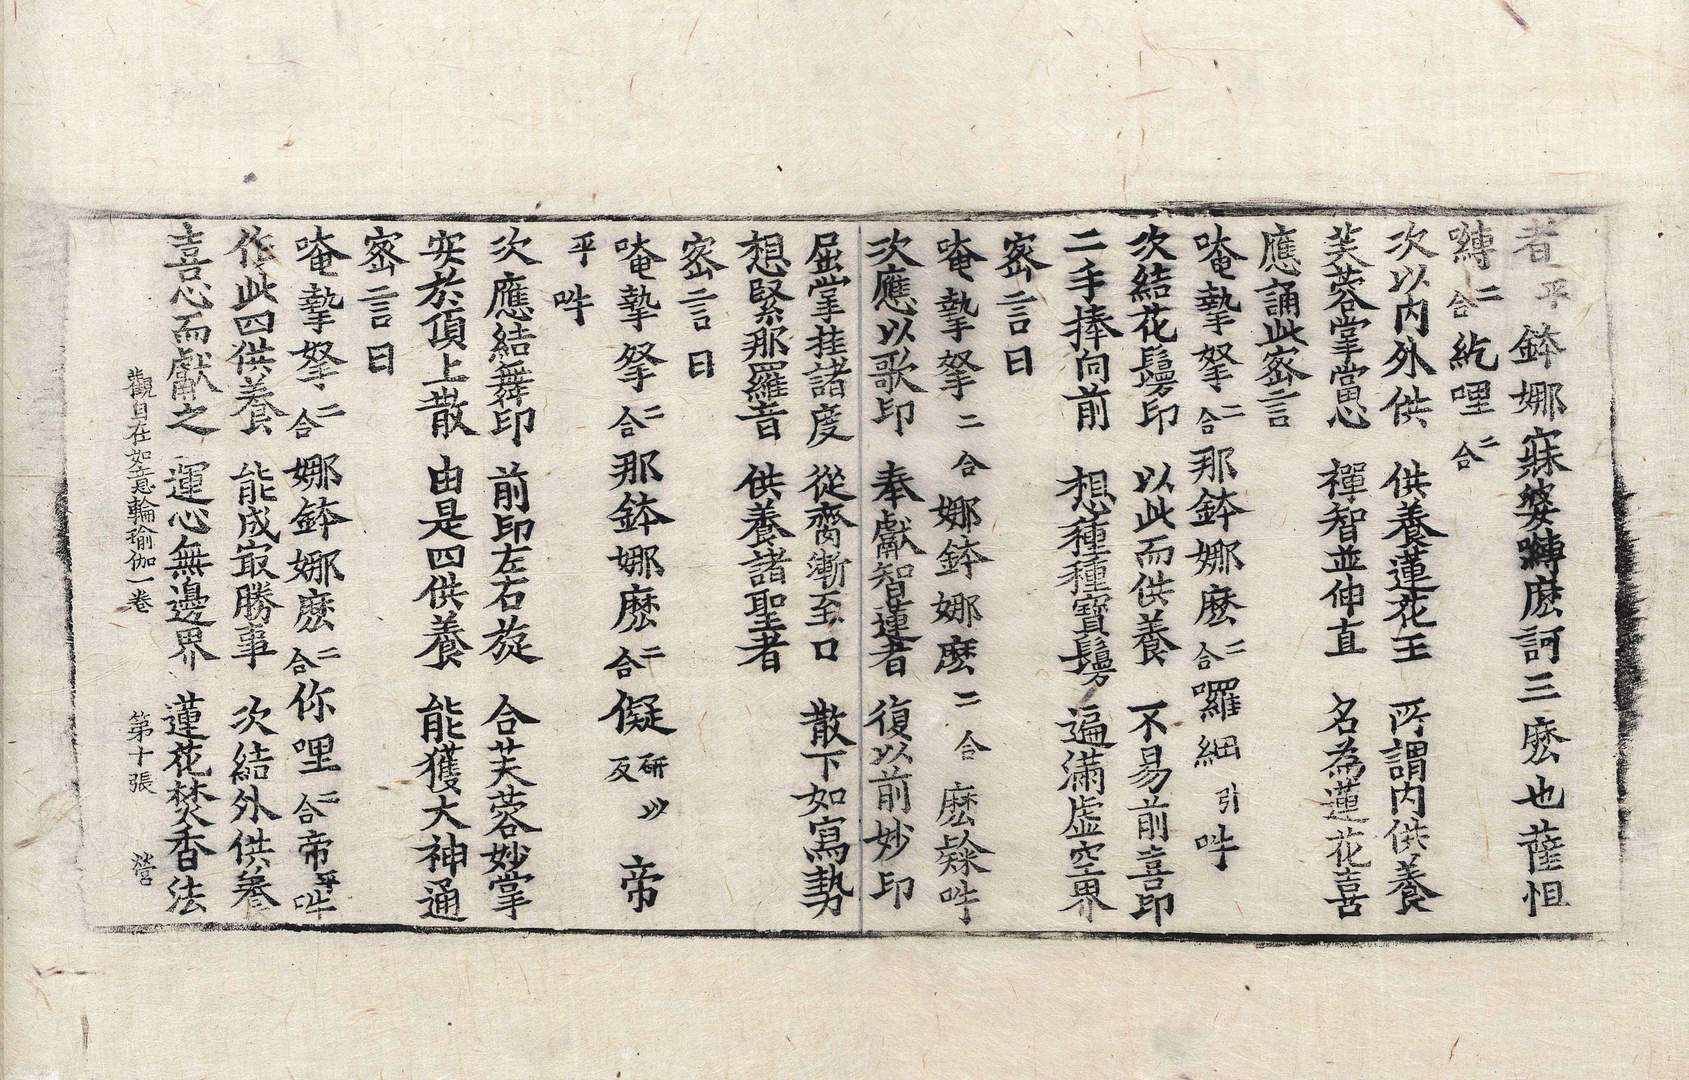 者平鉢娜寐婆嚩麽訶三麽也薩怛
嚩二合紇哩二合
次以内外供 供養蓮花王 所謂内供養
芙蓉掌當思 禪智並伸直 名為蓮花喜
應誦此密言
唵摯拏二合那鉢娜麽二合囉細引吽
次結花鬘印 以此而供養 不易前喜印
二手捧向前 想種種寶鬘 遍滿虛空界
密言曰
唵摯拏二合娜鉢娜麽二合麽𩜁吽
次應以歌印 奉獻智蓮者 復以前妙印
屈掌挂諸度 從齊漸至口 散下如寫勢
想緊那羅音 供養諸聖者
密言曰
唵摯拏二合那鉢娜麽二合儗研以反帝
平吽
次應結舞印 前印左右旋 合芙蓉妙掌
安於頂上散 由是四供養 能獲大神通
密言曰
唵摯拏二合娜鉢娜麽二合你哩二合帝平吽
作此四供養 能成㝡勝事 次結外供養
喜心而獻之 運心無邊界 蓮花焚香法
觀自在如意輪瑜伽一卷 第十張